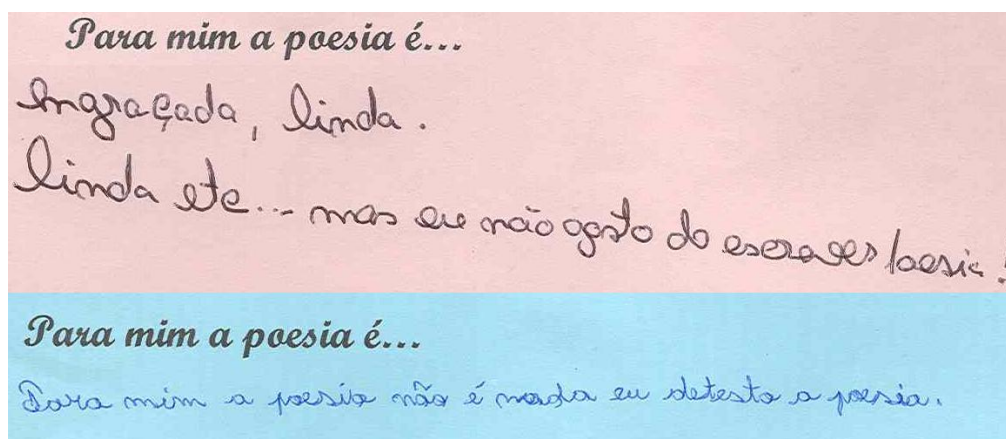 Para mim a poesia é...
Engraçada, linda.
linda etc... mas eu não gosto do escraver poesia!
Para mim a poesia é...
Para mim a poesia não é nada eu detesto a poesia.